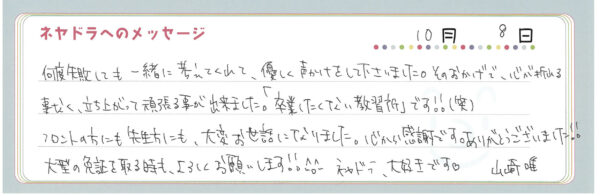 ネヤドラへのメッセージ
10月 8日
何度失敗しても一緒に考えてくれて、優しく声かけをして下さいました。そのおかげで、心が折れる
事なく、立ち上がって頑張る事が出来ました。「卒業したくない教習所」です!!(笑)
フロントの方にも先生方にも、大変お世話になりました。心から感謝です。ありがとうございました!!
大型の免許を取る時も、よろしくお願いします!!^^ ネヤドラ、大好きです。 山崎 唯